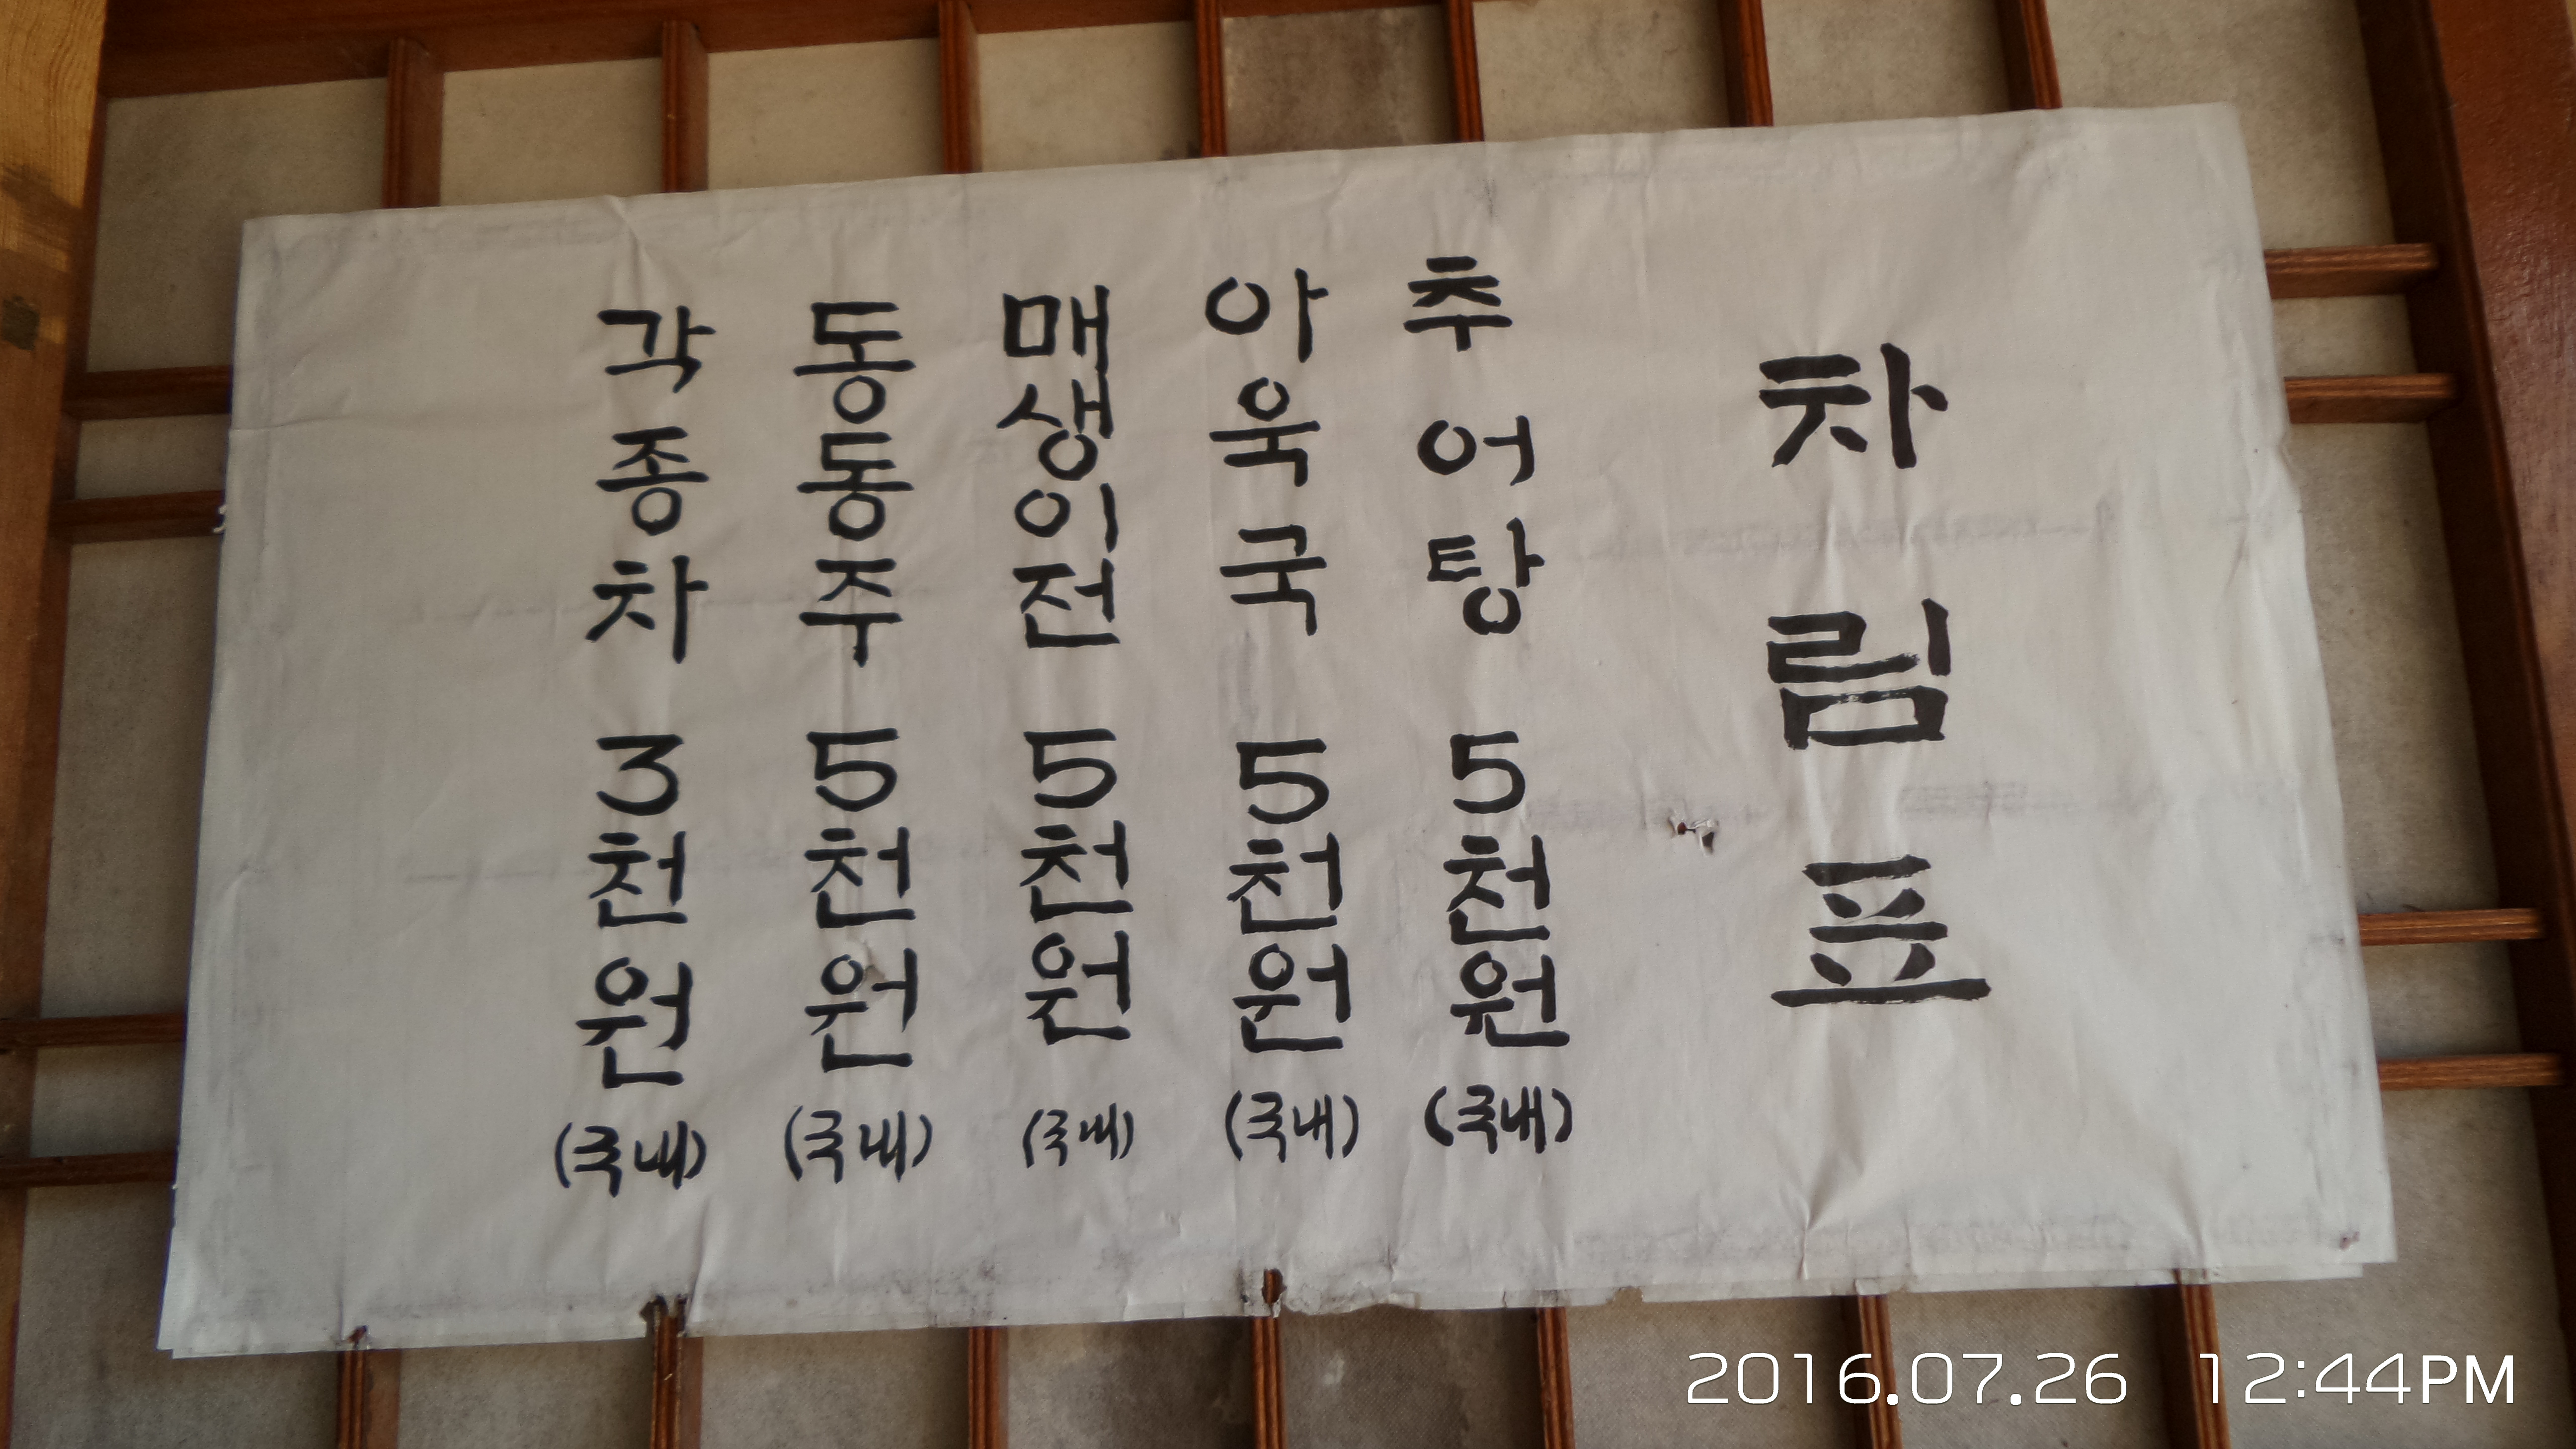 차림표
추어탕 5천원 (국내)
아욱국 5천원 (국내)
매생이전 5천원 (국내)
동동주 5천원 (국내)
각종차 3천원 (국내)
2016.07.26 12:44PM